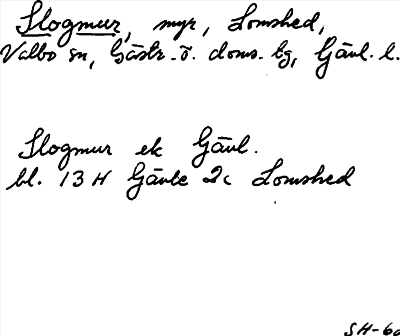 Slogmur, myr, Lomshed,
Valbo sn, Gästr. ö. doms. bg, Gävl. l.
Slogmur ek Gävl.
bl. 13 H Gävle 2c Lomshed
SH-60